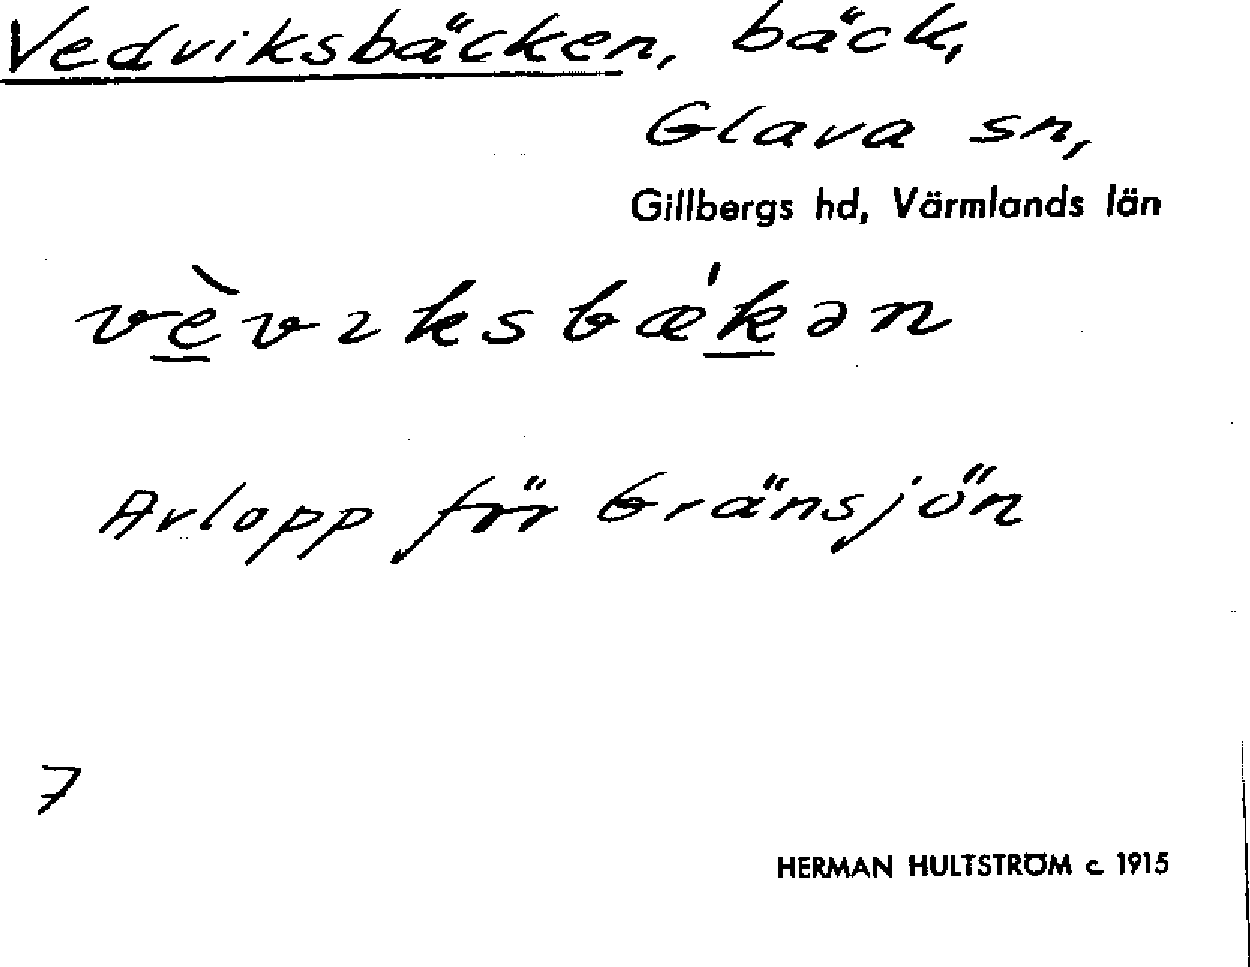 Vedviksbäcken, bäck,
Glava sn,
Gillbergs hd, Värmlands län
vèvıksbæ̍kən
Avlopp för Gränsjön
7
HERMAN HULTSTRÖM c 1915